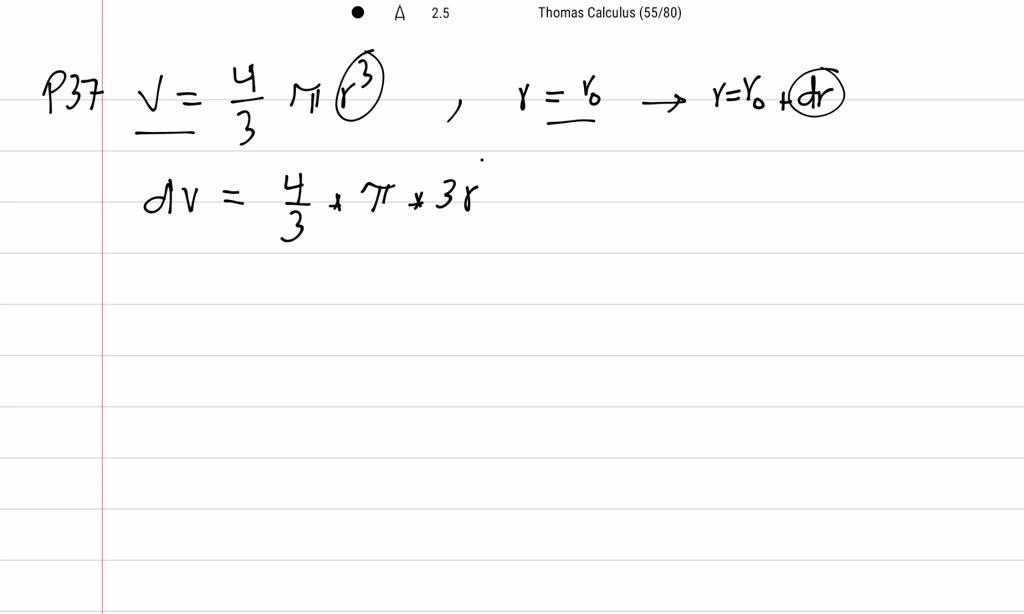 2.5 Thomas Calculus (55/80)
P37 V = 4/3 π r³ , r = r₀ → r=r₀ + dr
dv = 4/3 * π * 3r